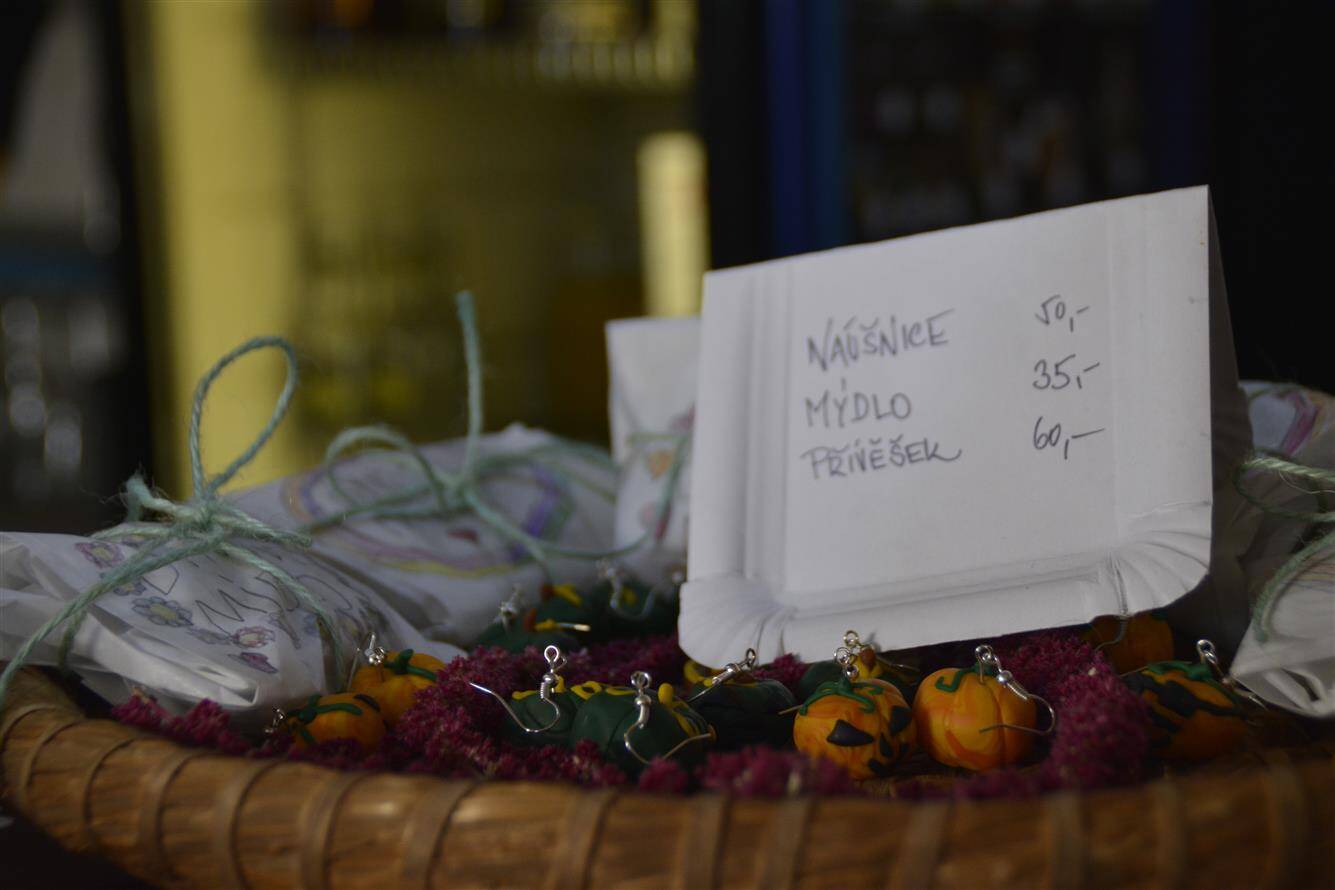 NÁUŠNICE 50,-
MÝDLO 35,-
PŘÍVĚŠEK 60,-